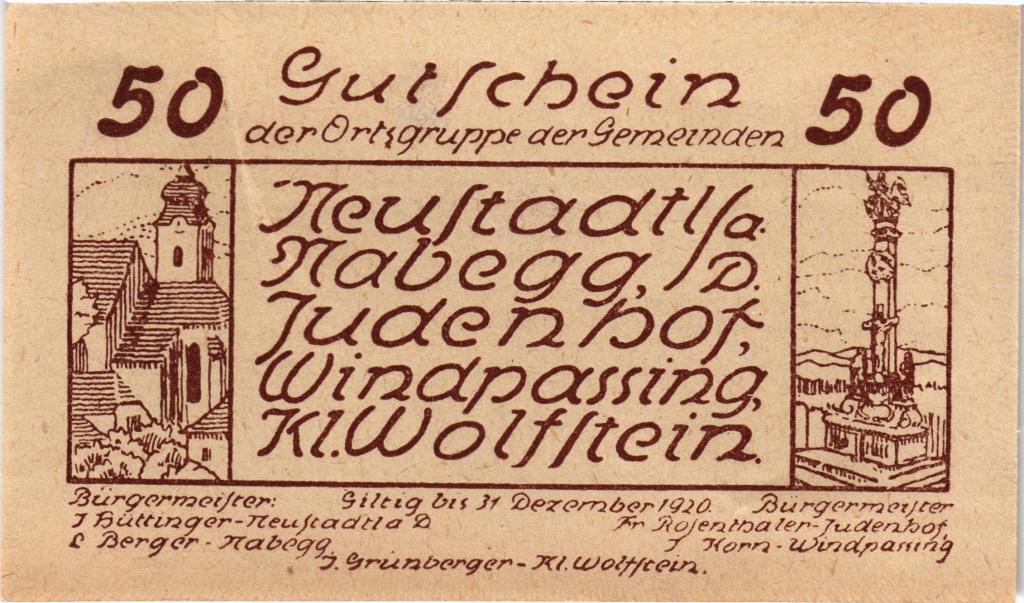 50 Gutschein 50
der Ortsgruppe der Gemeinden
Neustadtl/a.
Nabegg, /D.
Judenhof,
Windpassing,
Kl. Wolfstein.
Bürgermeister: Giltig bis 31 Dezember 1920. Bürgermeister
J Büttinger-Neustadtl a D Fr Rosenthaler-Judenhof,
L Berger - Nabegg, J. Korn - Windpassing
J. Grünberger - Kl. Wolfstein.